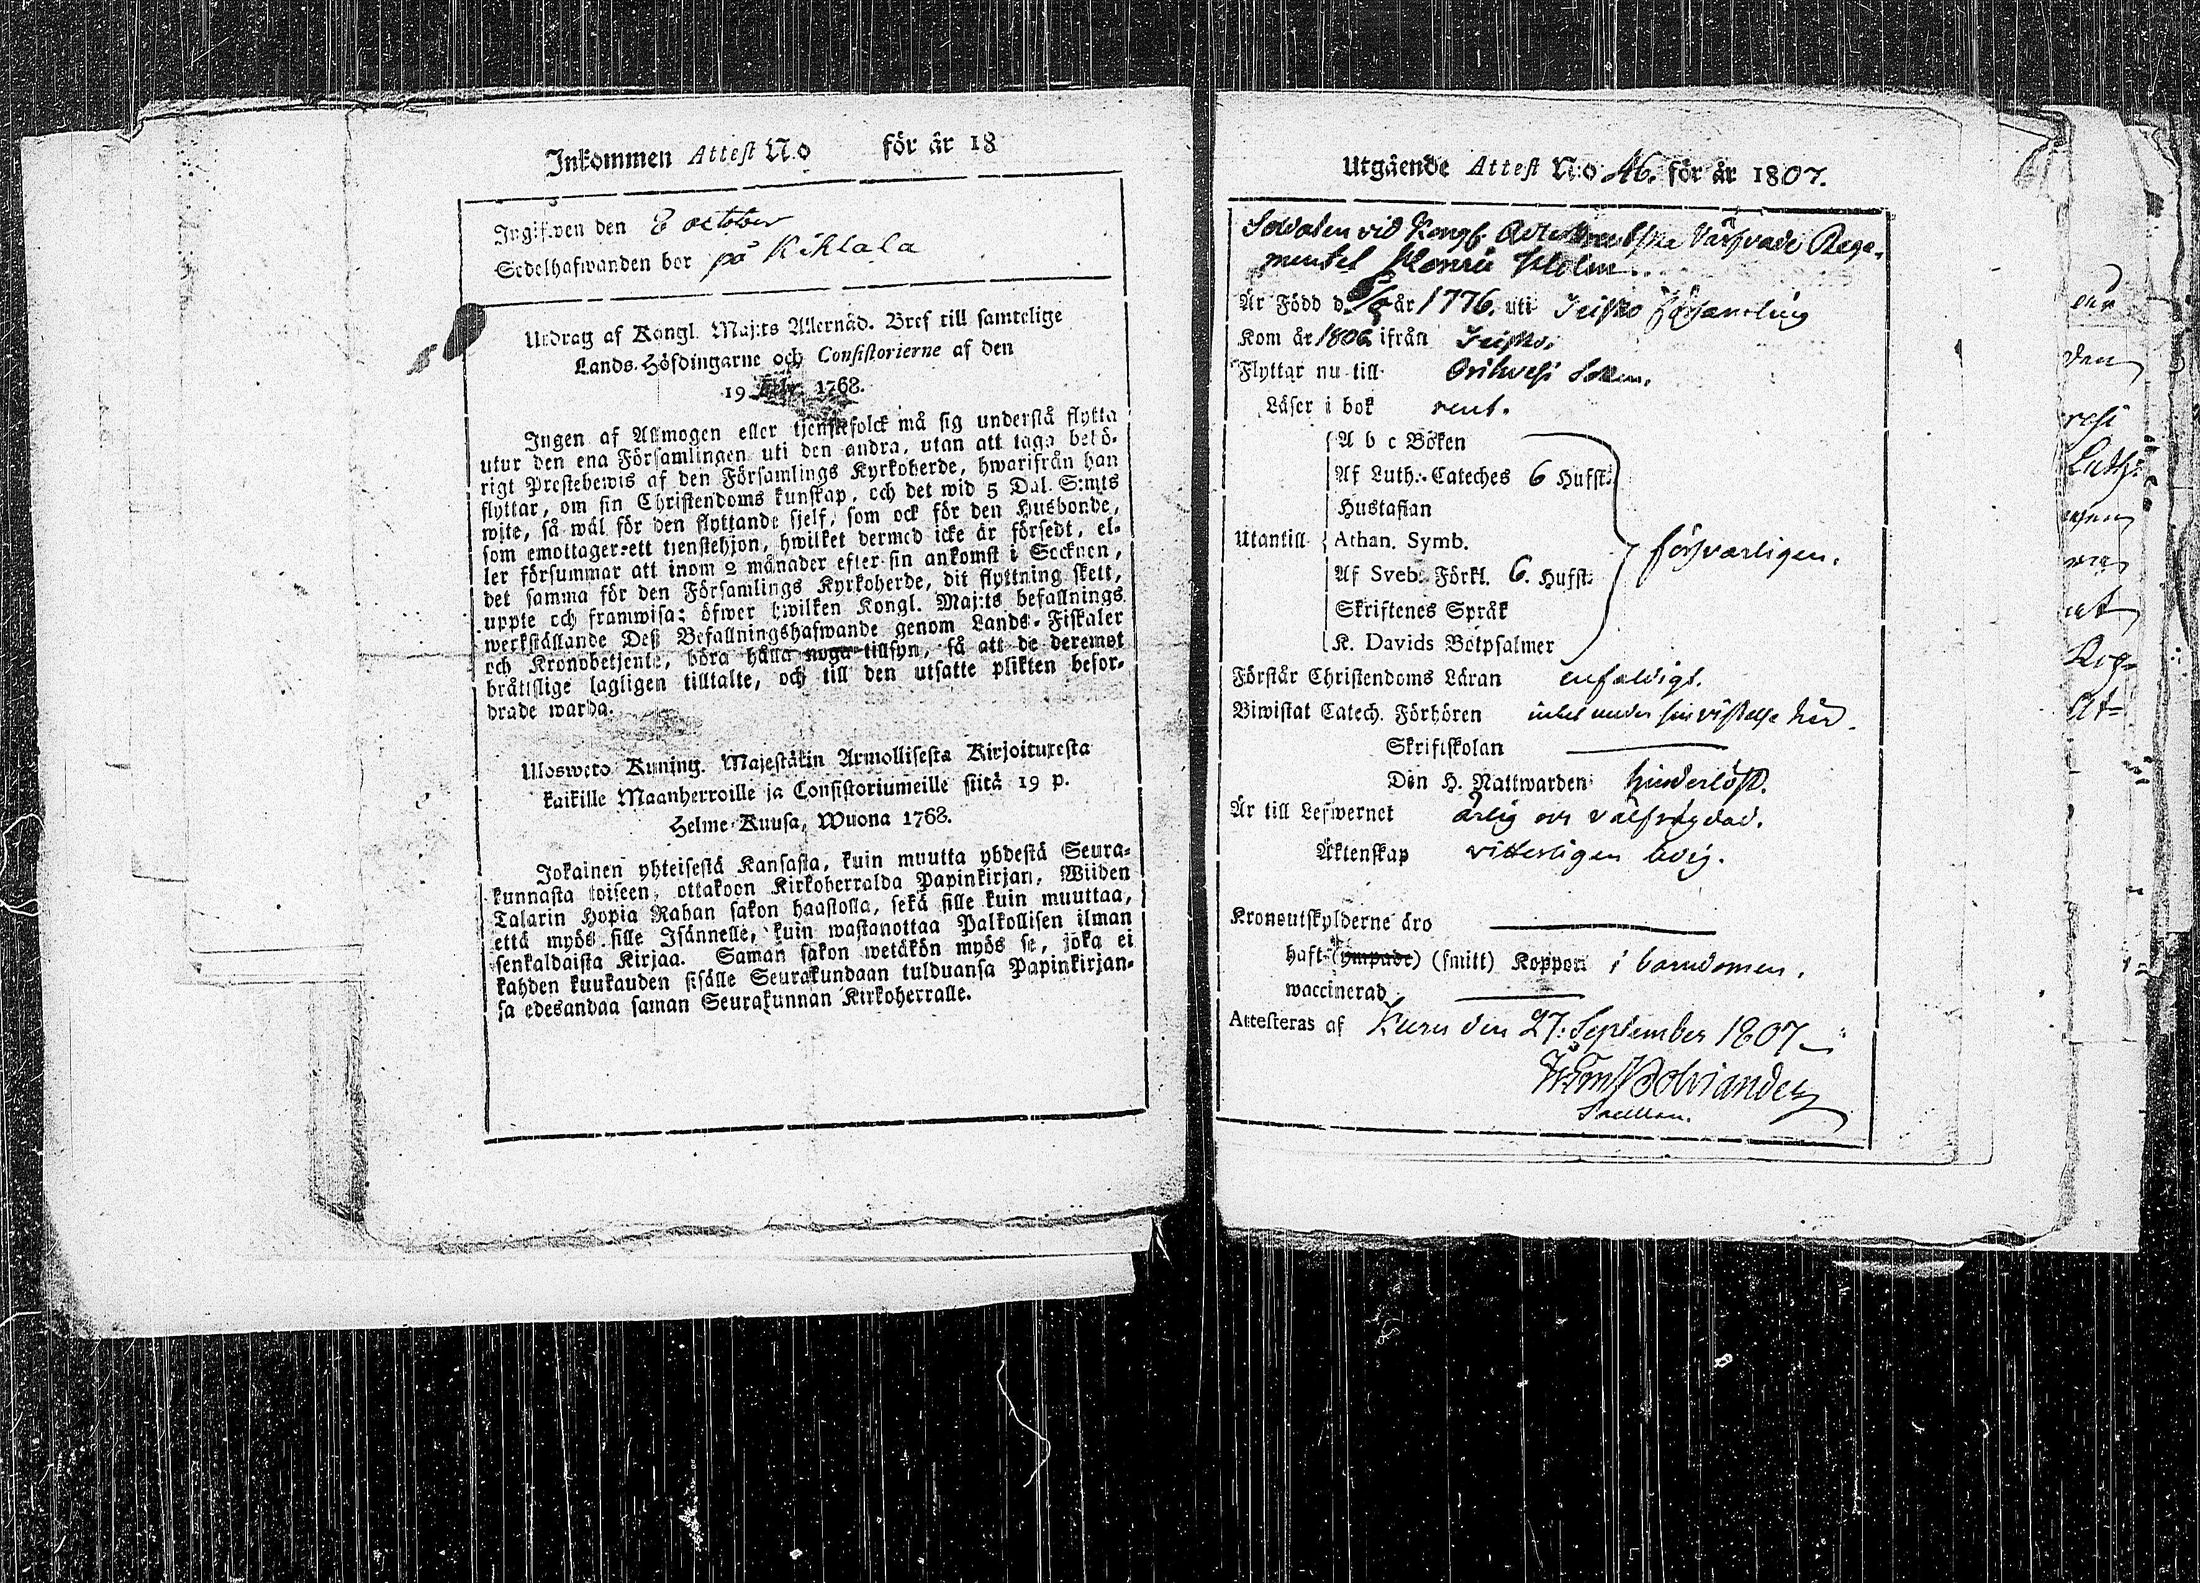 Inkommen Attest N:o för år 18
Ingifwen den 8 october
Sedelhafwanden bor på Kihlala
Utdrag af Kongl. Maj:ts Allernåd. Bref till samtelige
Lands-Höfdingarne och Consistorierne af den
19 1768.
Ingen af Allmogen eller tjenstefolck må sig understå flytta
utur den ena Församlingen uti den andra, utan att taga behö-
rigt Prestebewis af den Församlings Kyrkoherde, hwarifrån han
flyttar, om sin Christendoms kunskap, och det wid 5 Dal. S:mts
wite, så wäl för den flyttande sjelf, som ock för den Husbonde,
som emottager ett tjenstehjon, hwilket dermed icke är försedt, el-
ler försummar att inom 2 månader efter sin ankomst i Socknen,
det samma för den Församlings Kyrkoherde, dit flyttning skett,
uppte och framwisa: öfwer hwilken Kongl. Maj:ts befallnings
werkställande Deß Befallningshafwande genom Lands-Fiskaler
och Kronobetjente, böra hålla noga tillsyn, så att de deremot
bråttslige lagligen tilltalte, och till den utsatte plikten befor-
drade warda.
Ulosweto Kuning. Majestätin Armollisesta Kirjoituxesta
kaikille Maanherroille ja Consistoriumeille siitä 19 p.
Helme-Kuusa, Wuona 1768.
Jokainen yhteisestä Kansasta, kuin muutta yhdestä Seura-
kunnasta toiseen, ottakoon Kirkoherralda Papinkirjan, Wiiden
Talarin Hopia Rahan sakon haastolla, sekä sille kuin muuttaa,
että myös sille Isännelle, kuin wastanottaa Palkollisen ilman
senkaldaista Kirjaa. Saman sakon wetäkön myös se, joka ei
kahden kuukauden sisälle Seurakundaan tulduansa Papinkirjan-
sa edesandaa saman Seurakunnan Kirkoherralle.
Utgående Attest N:o 46. för år 1807.
Soldaten vid Kongl. Värfvade Rege-
mentet Holm.
Är Född d år 1776. uti Teisko församling
Kom år 1806 ifrån Teisko.
Flyttar nu till Orihvesi Sokn.
Läser i bok rent.
A b c Boken
Af Luth. Cateches 6 Hufst:
Hustaflan
Utantill Athan. Symb. försvarligen.
Af Sveb. Förkl. 6. Hufst:
Skriftenes Språk
K. Davids Botpsalmer
Förstår Christendoms Läran enfaldigt.
Biwistat Catech. Förhören intet under sin vistelse här.
Skriftskolan
Den H. Nattwarden hinderlöst.
Är till Lefwernet ärlig och välfrägdad.
Äktenskap vitterligen ledig.
Kronoutskylderne äro
haft (ympade) (smitt) Koppor i barndomen.
waccinerad
Attesteras af Kuru den 27. September 1807
Bolviander
Sacellan.
den